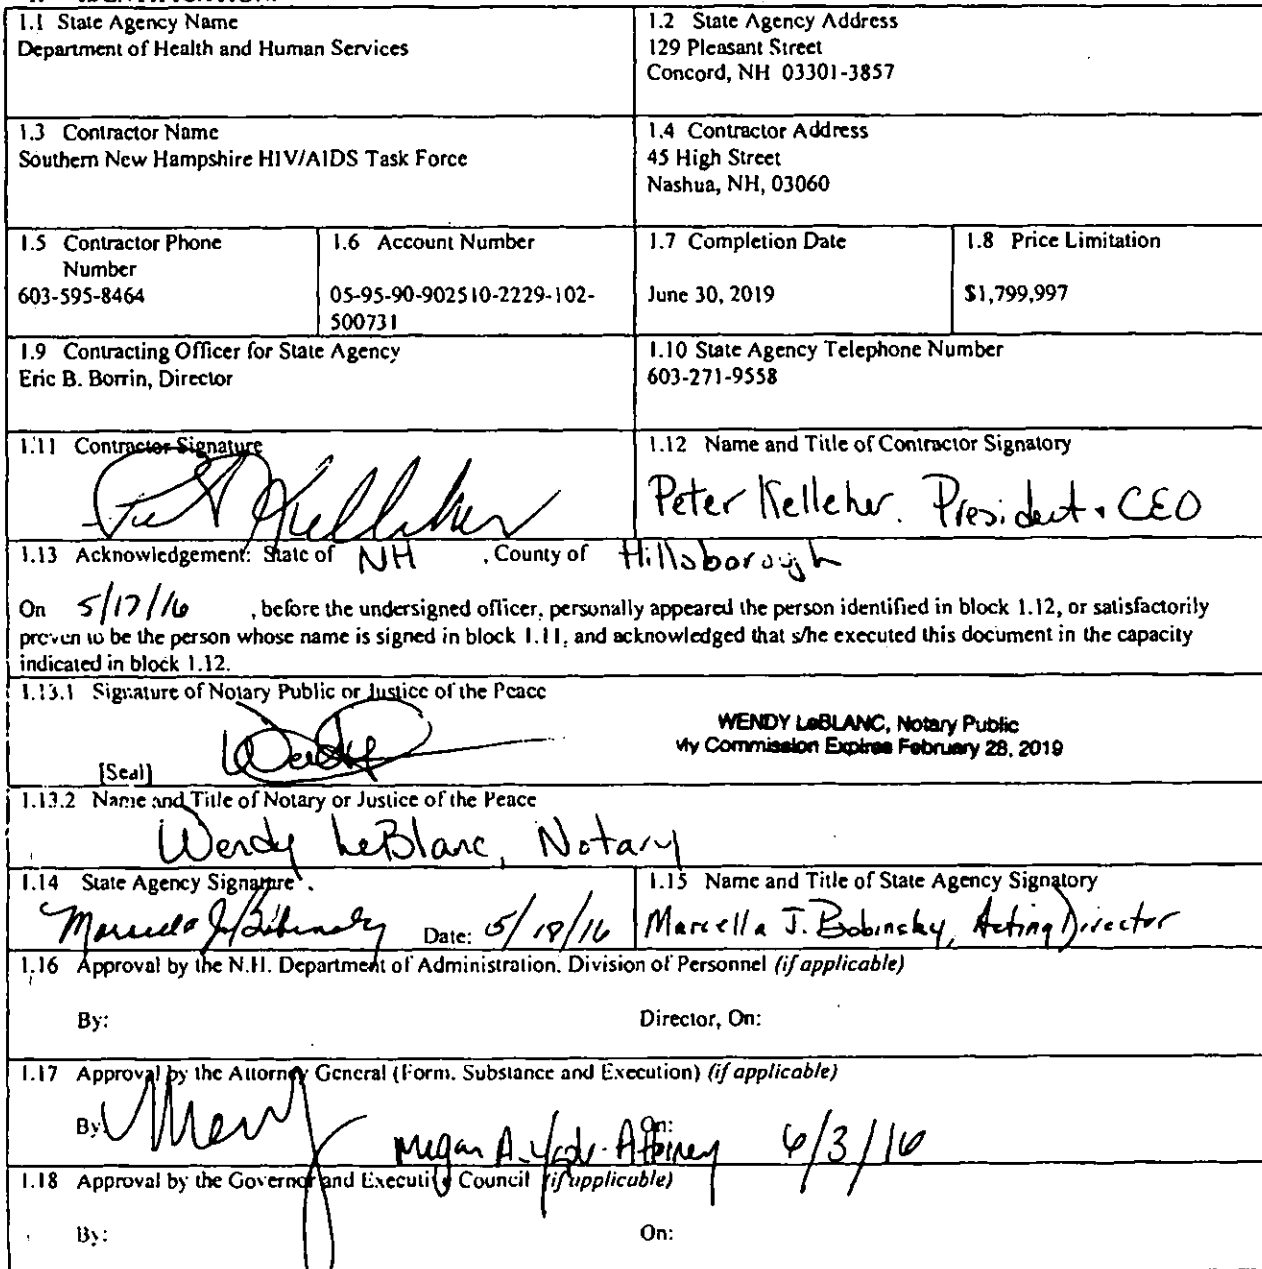 1.1 State Agency Name
Department of Health and Human Services
1.2 State Agency Address
129 Pleasant Street
Concord, NH 03301-3857
1.3 Contractor Name
Southern New Hampshire HIV/AIDS Task Force
1.4 Contractor Address
45 High Street
Nashua, NH, 03060
1.5 Contractor Phone
Number
603-595-8464
1.6 Account Number
05-95-90-902510-2229-102-
500731
1.7 Completion Date
June 30, 2019
1.8 Price Limitation
$1,799,997
1.9 Contracting Officer for State Agency
Eric B. Borrin, Director
1.10 State Agency Telephone Number
603-271-9558
1.11 Contractor Signature
1.12 Name and Title of Contractor Signatory
Peter Kelleher. President & CEO
1.13 Acknowledgement: State of NH , County of Hillsborough
On 5/17/16 , before the undersigned officer, personally appeared the person identified in block 1.12, or satisfactorily
proven to be the person whose name is signed in block 1.11, and acknowledged that s/he executed this document in the capacity
indicated in block 1.12.
1.13.1 Signature of Notary Public or Justice of the Peace
WENDY LeBLANC, Notary Public
My Commission Expires February 28, 2019
[Seal]
1.13.2 Name and Title of Notary or Justice of the Peace
Wendy LeBlanc, Notary
1.14 State Agency Signature
Date: 5/18/16
1.15 Name and Title of State Agency Signatory
Marcella J. Bobinsky, Acting Director
1.16 Approval by the N.H. Department of Administration, Division of Personnel (if applicable)
By: Director, On:
1.17 Approval by the Attorney General (Form, Substance and Execution) (if applicable)
By: On:
Megan A. Attorney 6/3/16
1.18 Approval by the Governor and Executive Council (if applicable)
By: On: